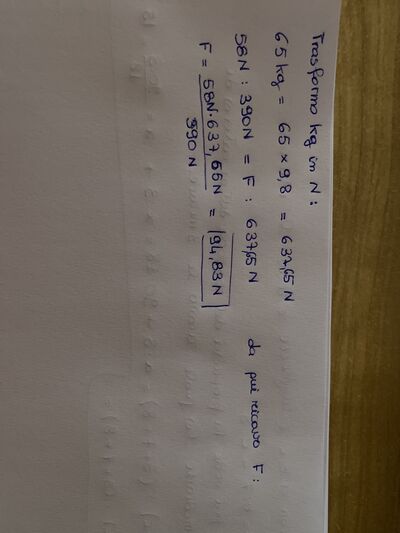 Trasformo kg in N:
65 kg = 65 × 9,8 = 637,65 N
58N : 390N = F : 637,65 N da qui ricavo F:
F = 58N · 637,65 N / 390 N = 94,83 N